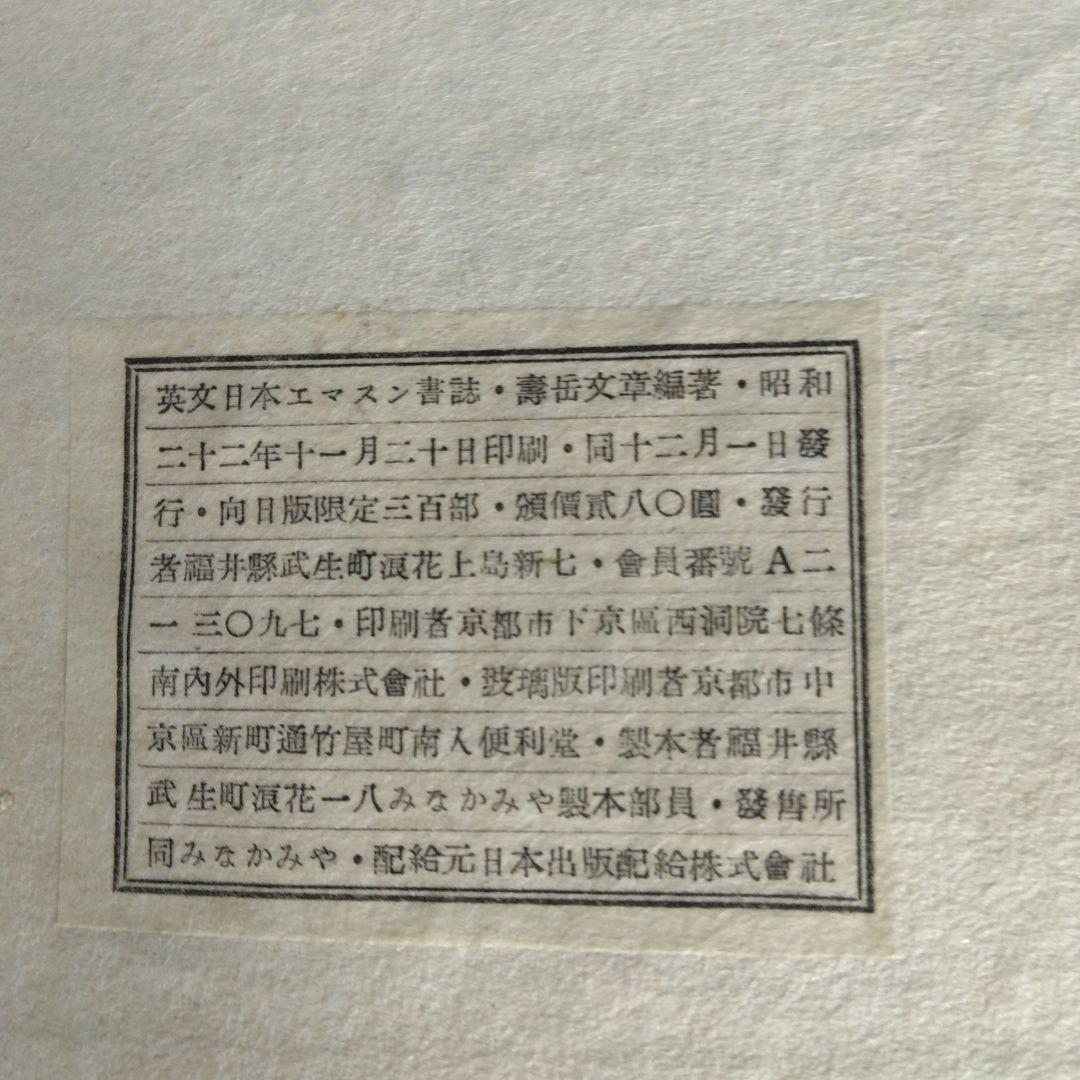 英文日本エマスン書誌・壽岳文章編著・昭和
二十二年十一月二十日印刷・同十二月一日發
行・向日版限定三百部・頒價貳八〇圓・發行
者福井縣武生町浪花上島新七・會員番號A二
一三〇九七・印刷者京都市下京區西洞院七條
南內外印刷株式會社・玻璃版印刷者京都市中
京區新町通竹屋町南入便利堂・製本者福井縣
武生町浪花一八みなかみや製本部員・發售所
同みなかみや・配給元日本出版配給株式會社